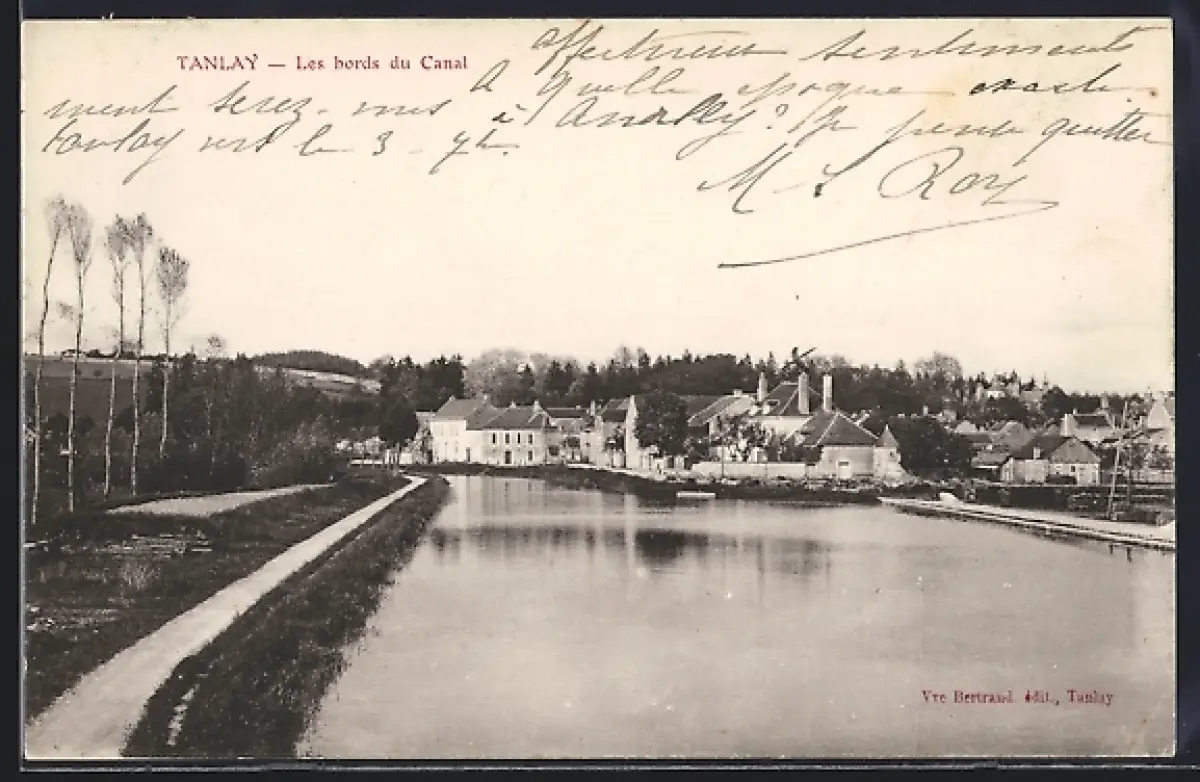 TANLAY — Les bords du Canal
affectueux sentiments
A quelle époque exacte
ment serez-vous à Andelly? Je pense quitter
Tanlay vers le 3
M L Roy
Vve Bertrand édit., Tanlay